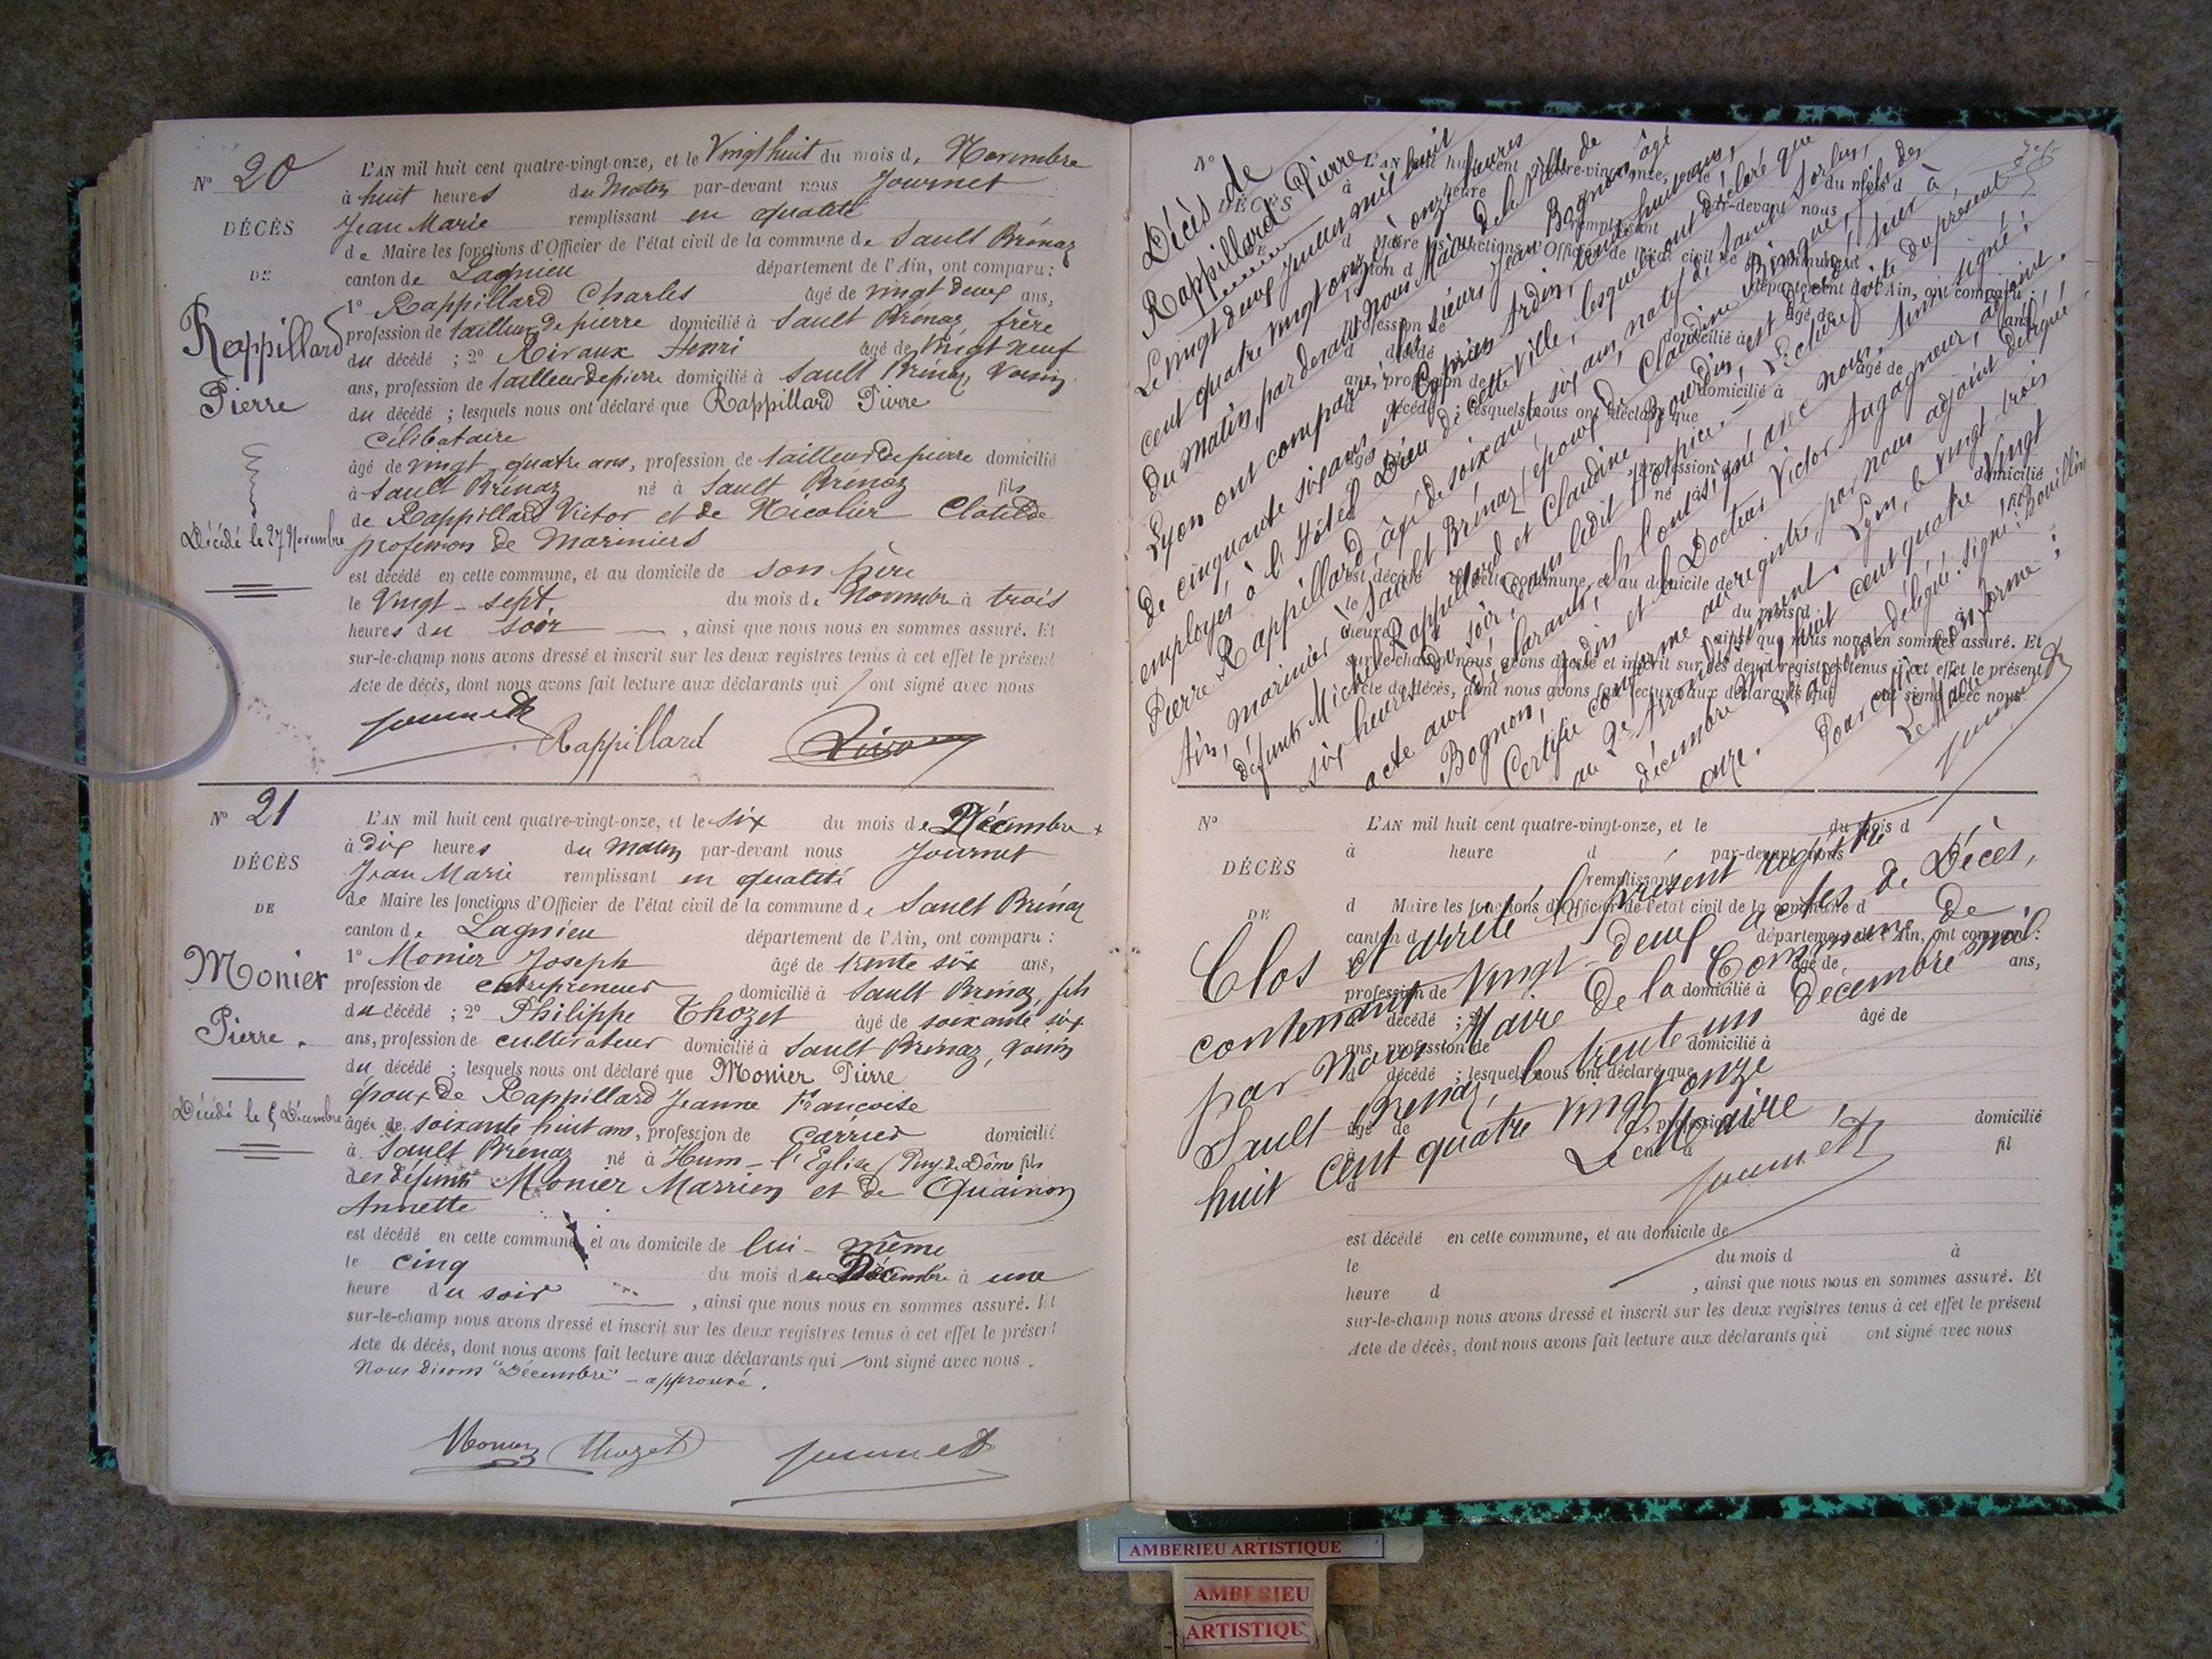 N° 20
DÉCÈS
DE
Rappillard
Pierre
Décédé le 27 Novembre
L'AN mil huit cent quatre-vingt-onze, et le Vingt huit du mois de Novembre
à huit heures du Matin par-devant nous Journet
Jean Marie remplissant en qualité
de Maire les fonctions d'Officier de l'état civil de la commune de Sault Brénaz
canton de Lagnieu département de l'Ain, ont comparu :
1° Rappillard Charles âgé de vingt deux ans,
profession de tailleur de pierre domicilié à Sault Brénaz, frère
du décédé ; 2° Rivaux Henri âgé de Vingt neuf
ans, profession de tailleur de pierre domicilié à Sault Brénaz, Voisin
du décédé ; lesquels nous ont déclaré que Rappillard Pierre
célibataire
âgé de vingt quatre ans, profession de tailleur de pierre domicilié
à Sault Brénaz né à Sault Brénaz fils
de Rappillard Victor et de Nicolier Clotilde
profession de Mariniers
est décédé en cette commune, et au domicile de son père
le Vingt-sept, du mois de Novembre à trois
heures du soir, ainsi que nous nous en sommes assuré. Et
sur-le-champ nous avons dressé et inscrit sur les deux registres tenus à cet effet le présent
Acte de décès, dont nous avons fait lecture aux déclarants qui ont signé avec nous
Journet
Rappillard
N° 21
DÉCÈS
DE
Monier
Pierre.
Décédé le 5 Décembre
L'AN mil huit cent quatre-vingt-onze, et le six du mois de Décembre
à dix heures du Matin par-devant nous Journet
Jean Marie remplissant en qualité
de Maire les fonctions d'Officier de l'état civil de la commune de Sault Brénaz
canton de Lagnieu département de l'Ain, ont comparu :
1° Monier Joseph âgé de trente six ans,
profession de entrepreneur domicilié à Sault Brénaz, fils
du décédé ; 2° Philippe Thozet âgé de soixante six
ans, profession de cultivateur domicilié à Sault Brénaz, voisin
du décédé ; lesquels nous ont déclaré que Monier Pierre
époux de Rappillard Jeanne Françoise
âgé de soixante huit ans, profession de Carrier domicilié
à Sault Brénaz né à Hum-l'Eglise (Puy de Dôme fils
des défunts Monier Marrien et de Quainon
Annette
est décédé en cette commune, et au domicile de lui-même
le cinq du mois de Décembre à une
heure du soir, ainsi que nous nous en sommes assuré. Et
sur-le-champ nous avons dressé et inscrit sur les deux registres tenus à cet effet le présent
Acte de décès, dont nous avons fait lecture aux déclarants qui ont signé avec nous.
Nous disons "Décembre" - approuvé.
Monier Thozet Journet
N°
DÉCÈS
Décès de
Rappillard Pierre
Le vingt deux Juillet mil huit
cent quatre vingt onze à onze heures
du Matin, par devant Nous Maire de la Ville de
Lyon ont comparu : les sieurs Jean Bognon, âgé
de cinquante six ans et Cyprien Ardin, trente huit ans,
employés à l'Hôtel Dieu de cette Ville, lesquels ont déclaré que
Pierre Rappillard, âgé de soixante six ans, natif de Saint Sorlin,
Ain, marinier à Sault Brénaz, époux de Claudine fils des
défunts Michel Rappillard et Claudine Bourdin, est décédé hier à
six heures du soir, dans ledit Hospice. Lecture faite du présent
acte aux déclarants, ils l'ont signé avec nous. Ainsi signé :
Bognon, Ardin et le Docteur Victor Augagneur, adjoint.
Certifié conforme au registre, par nous adjoint délégué
au 2e Arrondissement. Lyon, le vingt trois
décembre mil huit cent quatre vingt
onze. L'adjoint délégué. signé : Bouillin
Pour copie conforme :
Le Maire
Journet
L'AN mil huit cent quatre-vingt-onze, et le du mois d
à heure d par-devant nous
remplissant
d Maire les fonctions d'Officier de l'état civil de la commune d
canton d département de l'Ain, ont comparu :
profession de domicilié à
d décédé âgé de
ans, profession de domicilié à
d décédé ; lesquels nous ont déclaré que
profession domicilié
né à
est décédé en cette commune, et au domicile de
du mois d
heure ainsi que nous nous en sommes assuré. Et
sur-le-champ nous avons dressé et inscrit sur les deux registres tenus à cet effet le présent
Acte de décès, dont nous avons fait lecture aux déclarants qui ont signé avec nous
N°
DÉCÈS
DE
L'AN mil huit cent quatre-vingt-onze, et le du mois d
à heure d par-devant nous
remplissant
d Maire les fonctions d'Officier de l'état civil de la commune d
canton d département de l'Ain, ont comparu :
âgé de ans,
profession de domicilié à
décédé ; 2° âgé de
ans, profession de domicilié à
d décédé ; lesquels nous ont déclaré que
âgé de profession de domicilié
à né à fil
Clos et arrêté le présent registre
contenant vingt-deux actes de Décès,
par Nous Maire de la Commune de
Sault Brenaz, le trente un décembre mil
huit cent quatre vingt onze
Le Maire
Journet
est décédé en cette commune, et au domicile de
le du mois d à
heure d , ainsi que nous nous en sommes assuré. Et
sur-le-champ nous avons dressé et inscrit sur les deux registres tenus à cet effet le présent
Acte de décès, dont nous avons fait lecture aux déclarants qui ont signé avec nous
AMBERIEU ARTISTIQUE
AMBERIEU
ARTISTIQU